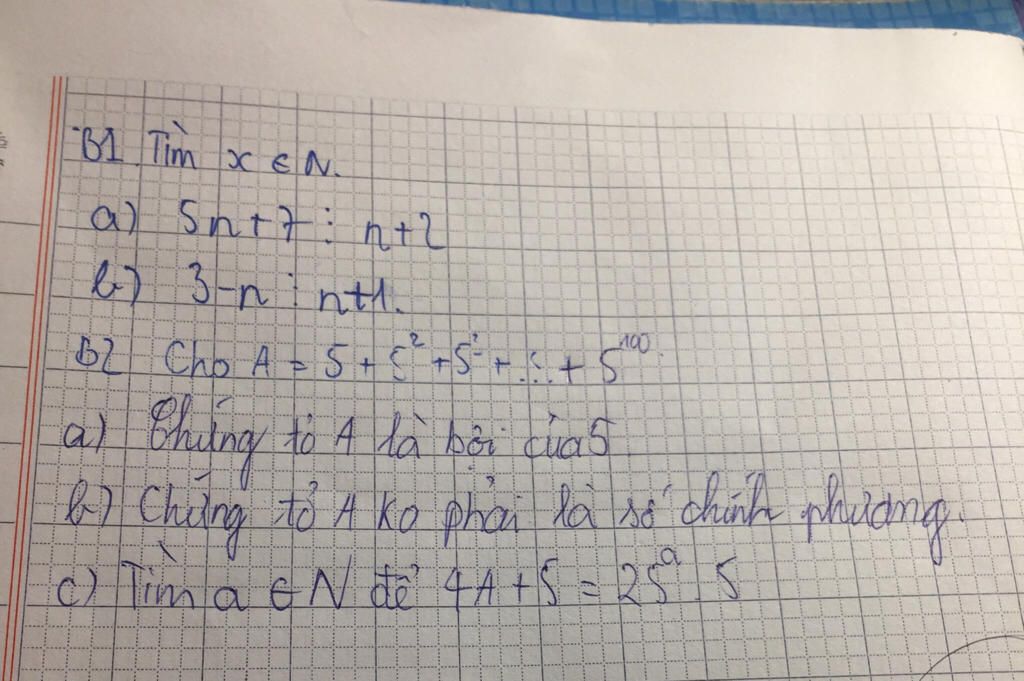 B1. Tìm x ∈ N.
a) 5n+7 ⋮ n+2
b) 3-n ⋮ n+1.
B2 Cho A = 5 + 5² + 5³ + ... + 5¹⁰⁰.
a) Chứng tỏ A là bội của 5
b) Chứng tỏ A ko phải là số chính phương.
c) Tìm a ∈ N để 4A + 5 = 25ᵃ . 5